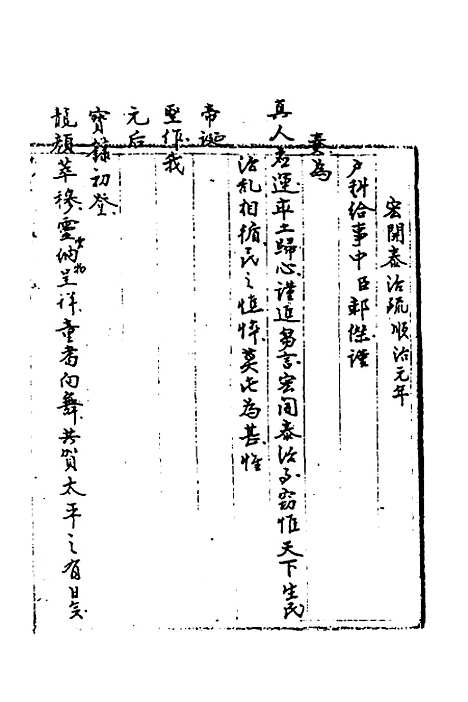 宏開泰治疏順治元年
户科給事中臣郝傑謹
奏為
真人應運率土歸心謹進芻言宏開泰治事竊惟天下生民
治亂相循民之憔悴莫此為甚惟
帝誕
聖作我
元后
寳籙初登
龍顔萃穆靈納呈祥童耆向舞共賀太平之有日矣